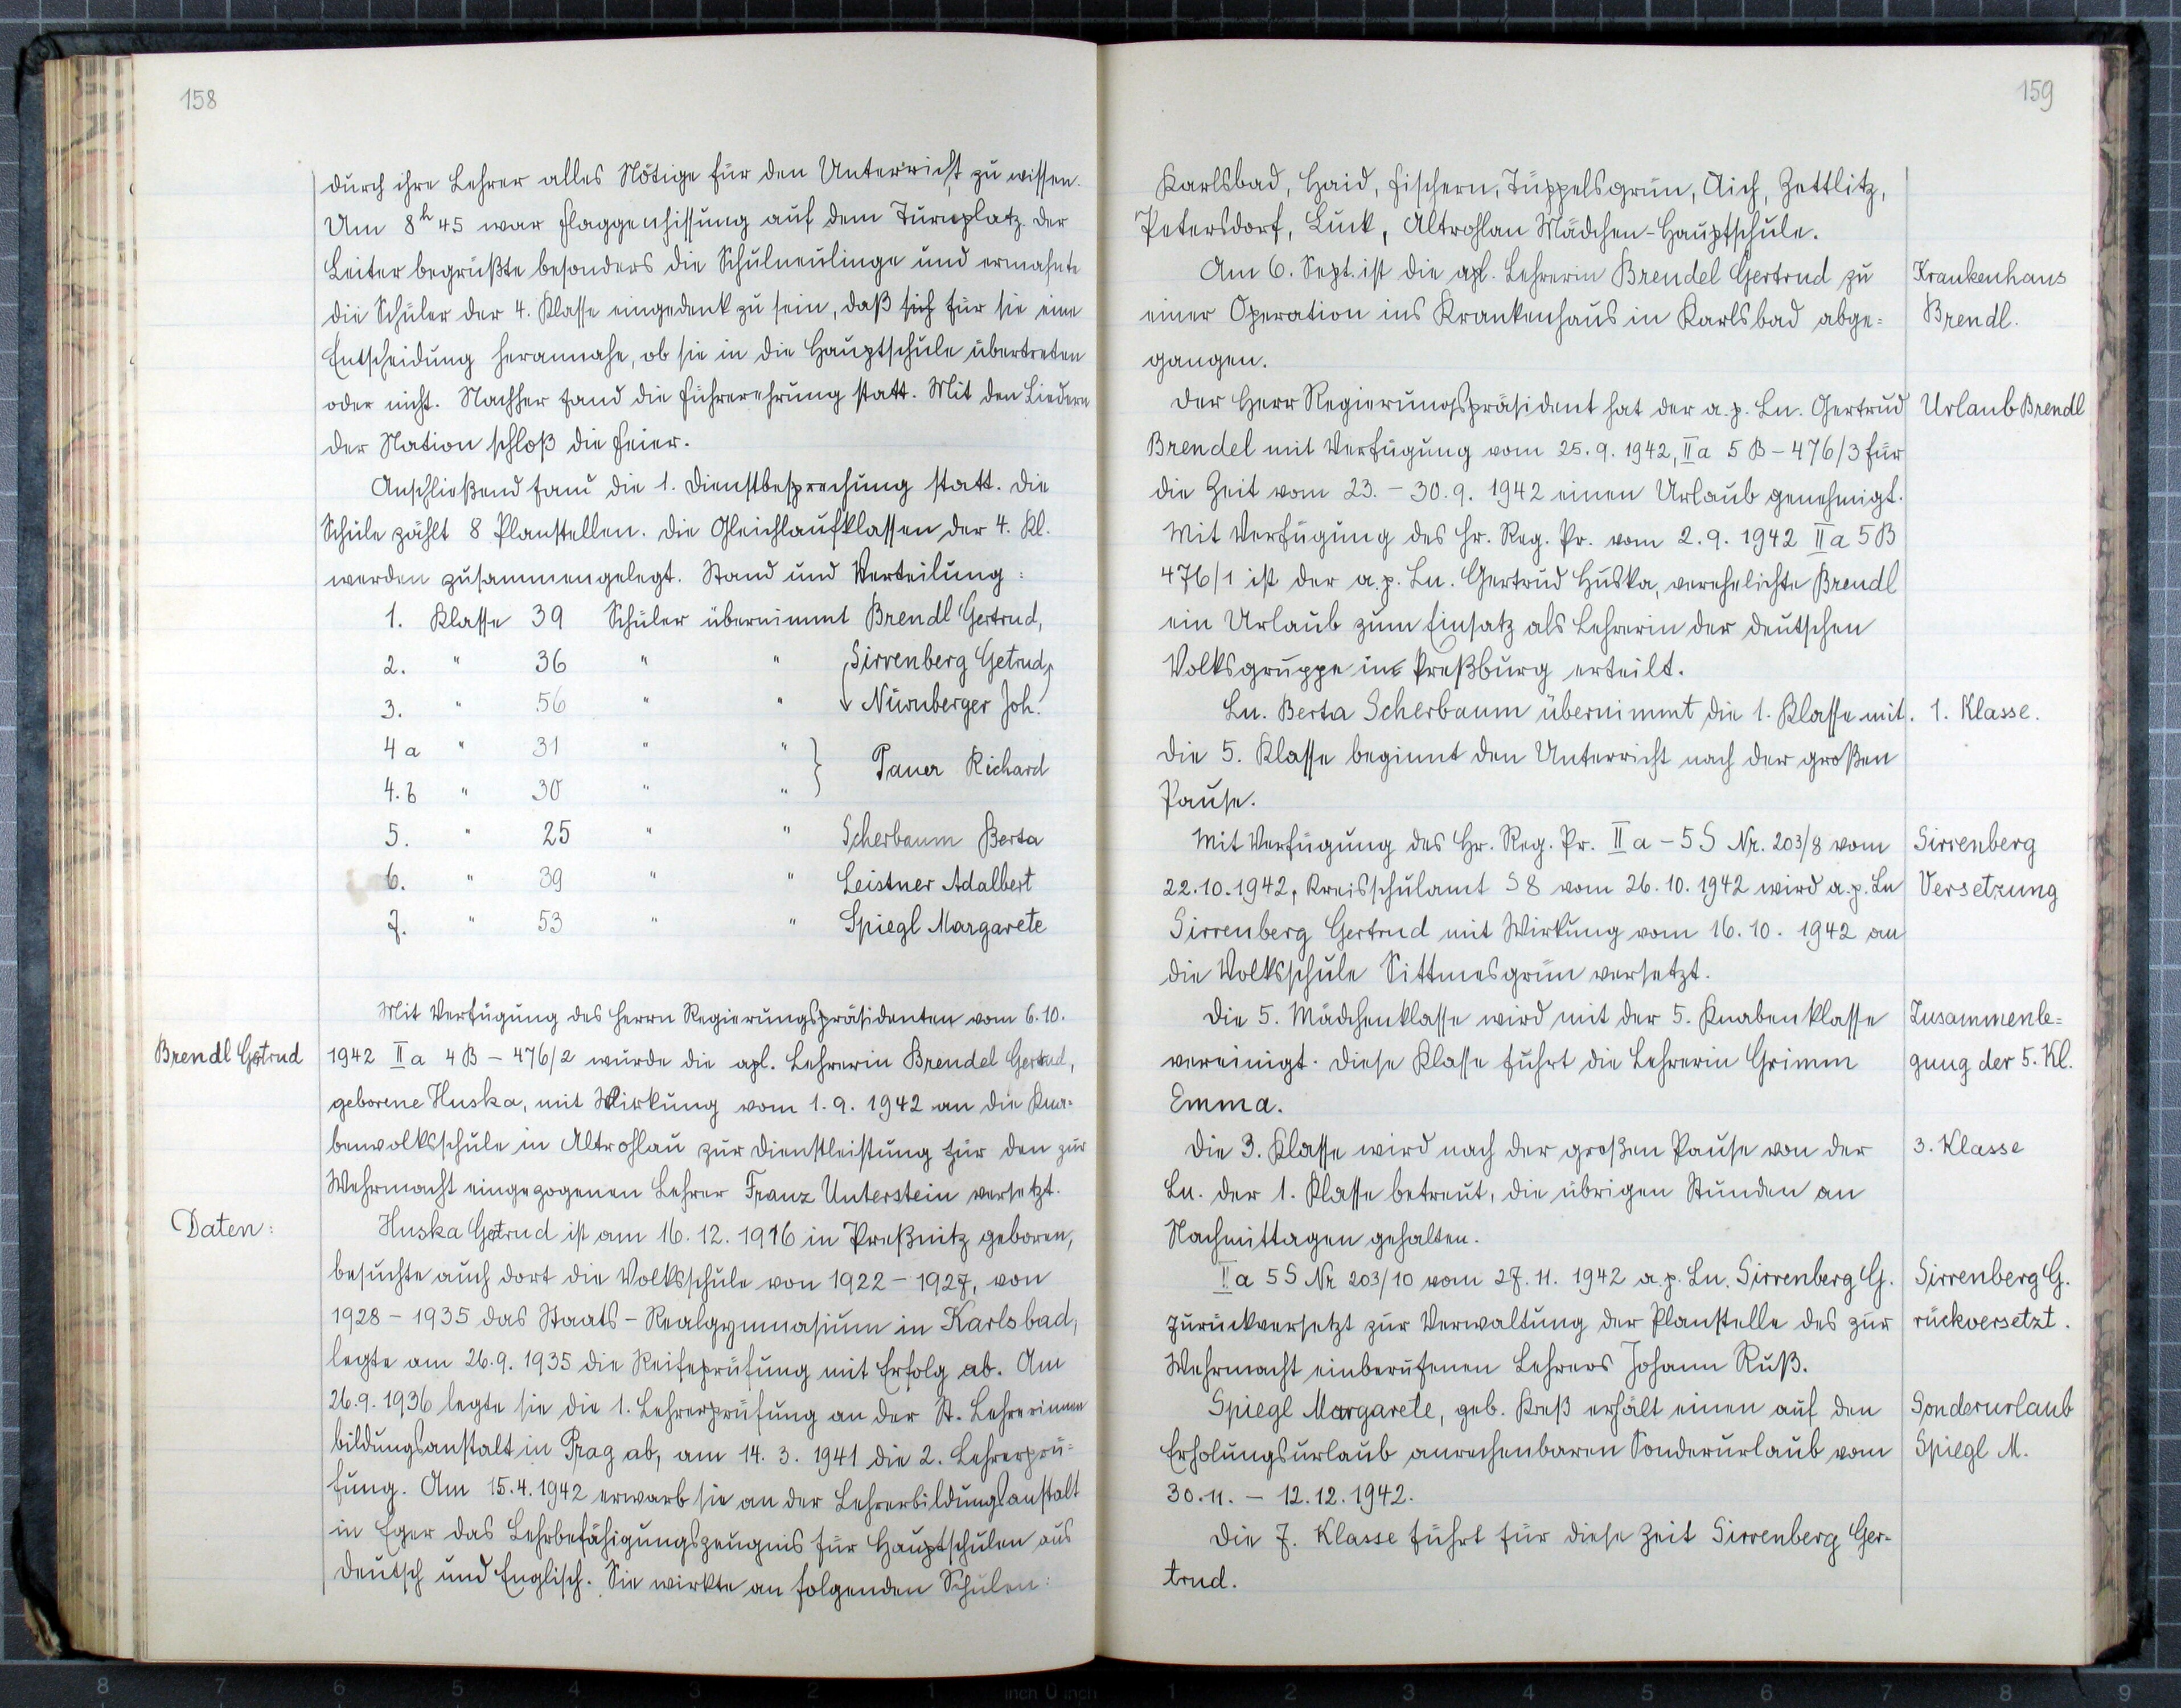 158
durch ihre Lehrer alles Nötige für den Unterricht zu wissen.
Um 8h 45 war Flaggenhissung auf dem Turnplatz. Der
Leiter begrüßte besonders die Schulneulinge und ermahnte
die Schüler der 4. Klasse eingedenk zu sein, daß sich für sie eine
Entscheidung herannahe, ob sie in die Hauptschule übertreten
oder nicht. Nachher fand die Führerehrung statt. Mit den Liedern
der Nation schloß die Feier.
Anschließend fand die 1. Dienstbesprechung statt. Die
Schule zählt 8 Planstellen. Die Gleichlaufklassen der 4. Kl.
werden zusammengelegt. Stand und Verteilung:
1. Klasse 39 Schüler übernimmt Brendl Gertrud,
2. " 36 " " Sirrenberg Getrud,
3. " 56 " " Nürnberger Joh.
4a " 31 " " } Pauer Richard
4.b " 30 " "
5. " 25 " " Scherbaum Berta
6. " 39 " " Leistner Adalbert
7. " 53 " " Spiegl Margarete
Mit Verfügung des Herrn Regierungspräsidenten vom 6.10.
Brendl Gertrud
1942 IIa 4B – 476/2 wurde die apl. Lehrerin Brendel Gertrud,
geborene Huska, mit Wirkung vom 1.9.1942 an die Kna-
benvolksschule in Altrohlau zur Dienstleistung für den zur
Wehrmacht eingezogenen Lehrer Franz Unterstein versetzt.
Daten:
Huska Gertrud ist am 16.12.1916 in Preßnitz geboren,
besuchte auch dort die Volksschule von 1922 – 1927, von
1928 – 1935 das Staats-Realgymnasium in Karlsbad,
legte am 26.9.1935 die Reifeprüfung mit Erfolg ab. Am
26.9.1936 legte sie die 1. Lehrerprüfung an der St. Lehrerinnen
bildungsanstalt in Prag ab, am 14.3.1941 die 2. Lehrerprü=
fung. Am 15.4.1942 erwarb sie an der Lehrerbildungsanstalt
in Eger das Lehrbefähigungszeugnis für Hauptschulen aus
Deutsch und Englisch. Sie wirkte an folgenden Schulen:
159
Karlsbad, Haid, Fischern, Tüppelsgrün, Aich, Zettlitz,
Petersdorf, Luck, Altrohlau Mädchen-Hauptschule.
Am 6. Sept. ist die apl. Lehrerin Brendel Gertrud zu
Krankenhaus
einer Operation ins Krankenhaus in Karlsbad abge=
Brendl.
gangen.
Der Herr Regierungspräsident hat der a.p. Ln. Gertrud
Urlaub Brendl
Brendel mit Verfügung vom 25.9.1942, IIa 5 B – 476/3 für
die Zeit vom 23. – 30.9.1942 einen Urlaub genehmigt.
Mit Verfügung des Hr. Reg. Pr. vom 2.9.1942 IIa 5B
476/1 ist der a.p. Ln. Gertrud Huska, verehelichte Brendl
ein Urlaub zum Einsatz als Lehrerin der deutschen
Volksgruppe in Preßburg erteilt.
Ln. Berta Scherbaum übernimmt die 1. Klasse mit.
1. Klasse.
Die 5. Klasse beginnt den Unterricht nach der großen
Pause.
Mit Verfügung des Hr. Reg. Pr. IIa – 5S Nr. 203/8 vom
Sirrenberg
22.10.1942, Kreisschulamt S8 vom 26.10.1942 wird a.p. Ln
Versetzung
Sirrenberg Gertrud mit Wirkung vom 16.10.1942 an
die Volksschule Sittmesgrün versetzt.
Die 5. Mädchenklasse wird mit der 5. Knabenklasse
Zusammenle=
vereinigt. Diese Klasse führt die Lehrerin Grimm
gung der 5. Kl.
Emma.
Die 3. Klasse wird nach der großen Pause von der
3. Klasse
Ln. der 1. Klasse betreut, die übrigen Stunden an
Nachmittagen gehalten.
IIa 5S Nr 203/10 vom 27.11.1942 a.p. Ln. Sirrenberg G.
Sirrenberg G.
zurückversetzt zur Verwaltung der Planstelle des zur
rückversetzt.
Wehrmacht einberufenen Lehrers Johann Ruß.
Spiegl Margarete, geb. Kreß erhält einen auf den
Sonderurlaub
Erholungsurlaub anrechenbaren Sonderurlaub vom
Spiegl M.
30.11. – 12.12.1942.
Die 7. Klasse führt für diese Zeit Sirrenberg Ger-
trud.
8 7 6 5 4 3 2 1 inch 0 inch 1 2 3 4 5 6 7 8 9